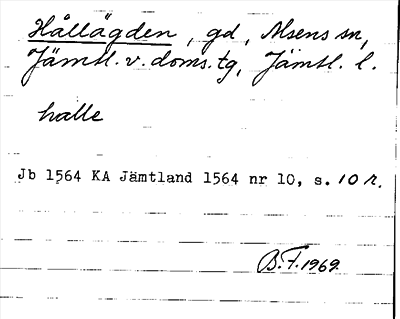 Hållägden, gd, Alsens sn,
Jämtl. v. doms. tg, Jämtl. l.
halle
Jb 1564 KA Jämtland 1564 nr 10, s. 10 r.
B.F. 1969